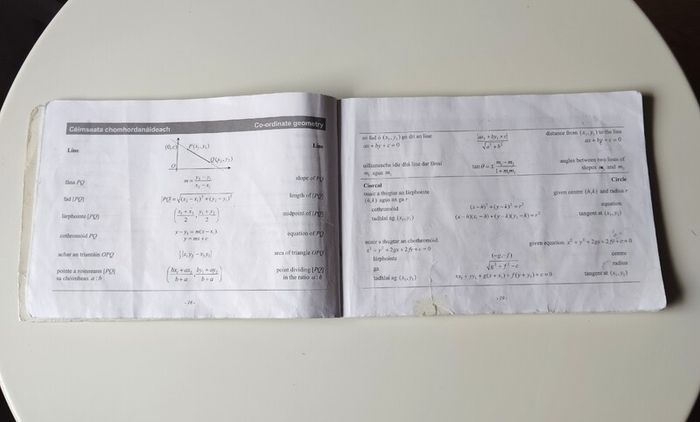 Céimseata chomhordanáideach Co-ordinate geometry
Líne Line
(0, c) P(x₁, y₁)
Q(x₂, y₂)
O
fána PQ m = (y₂ − y₁)/(x₂ − x₁) slope of PQ
fad [PQ] |PQ| = √((x₂ − x₁)² + (y₂ − y₁)²) length of [PQ]
lárphointe [PQ] ((x₁ + x₂)/2, (y₁ + y₂)/2) midpoint of [PQ]
cothromóid PQ y − y₁ = m(x − x₁) equation of PQ
y = mx + c
achar an triantáin OPQ ½|x₁y₂ − x₂y₁| area of triangle OPQ
pointe a roinneann [PQ] ((bx₁ + ax₂)/(b + a), (by₁ + ay₂)/(b + a)) point dividing [PQ]
sa chóimheas a : b in the ratio a : b
- 18 -
an fad ó (x₁, y₁) go dtí an líne |ax₁ + by₁ + c|/√(a² + b²) distance from (x₁, y₁) to the line
ax + by + c = 0 ax + by + c = 0
uillinneacha idir dhá líne dar fánaí tan θ = ± (m₁ − m₂)/(1 + m₁m₂) angles between two lines of
m₁ agus m₂ slopes m₁ and m₂
Ciorcal Circle
má tá an lárphointe
(h, k) agus an ga r given centre (h, k) and radius r
cothromóid (x − h)² + (y − k)² = r² equation
tadhlaí ag (x₁, y₁) (x − h)(x₁ − h) + (y − k)(y₁ − k) = r² tangent at (x₁, y₁)
chothromóid given equation x² + y² + 2gx + 2fy + c = 0
x² + y² + 2gx + 2fy + c = 0
lárphointe (−g, −f) centre
ga √(g² + f² − c) radius
tadhlaí ag (x₁, y₁) xx₁ + yy₁ + g(x + x₁) + f(y + y₁) + c = 0 tangent at (x₁, y₁)
- 19 -